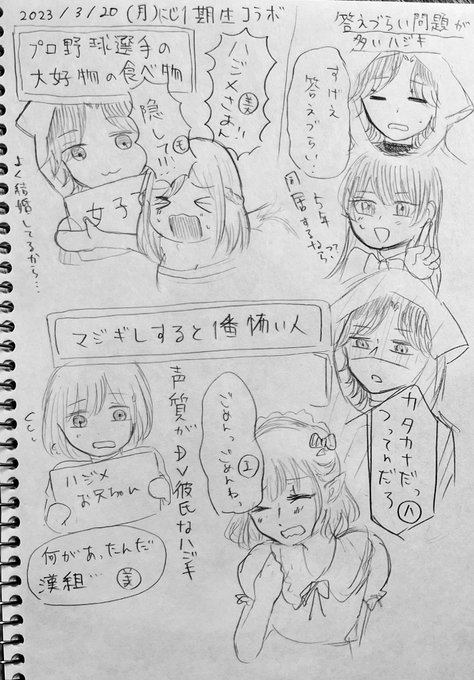 2023/3/20(月)にじ1期生コラボ
答えづらい問題が
多いハジキ
プロ野球選手の
大好物の食べ物
ハジメさぁん!!
美
すげえ
答えづらい…
隠して!!!
モ
女子
よく結婚してるから…
5年
同居するなら、
マジギレすると1番怖い人
声質がDV彼氏なハジキ
ハジメ
お兄ちゃん
ごめんっごめんねっ
エ
カタカナだっ
つってんだろ
ハ
何があったんだ
漢組…
美